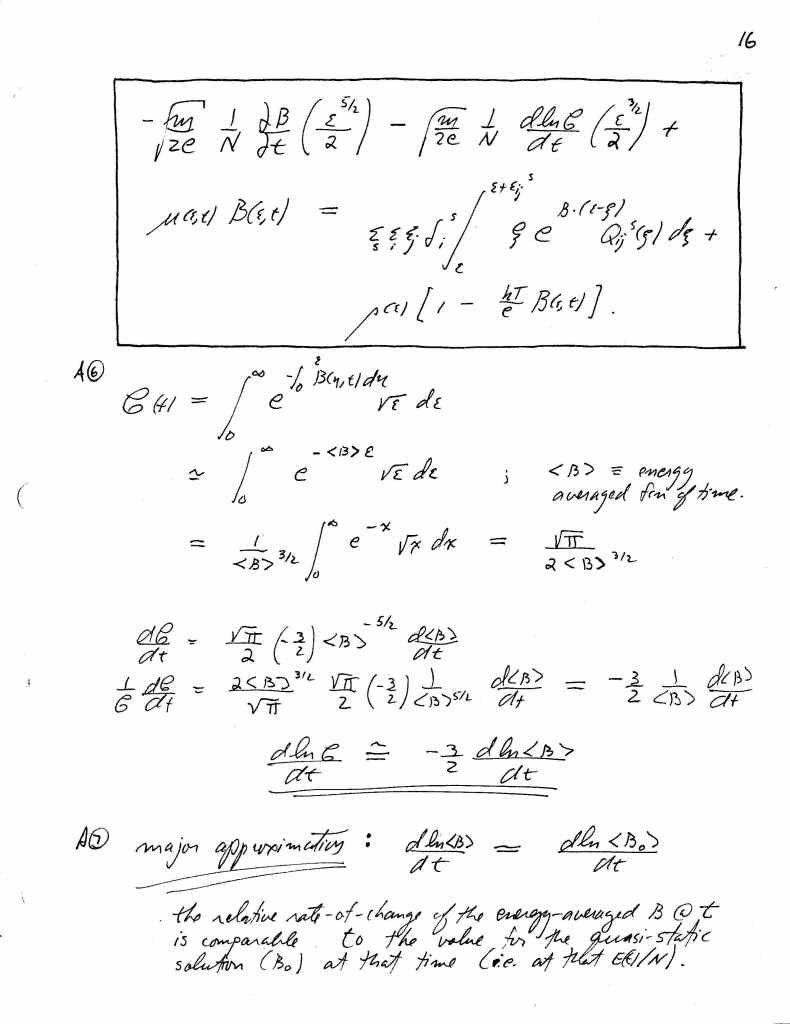 16
-√(m/2e) 1/N ∂B/∂t (ε^5/2 / 2) - √(m/2e) 1/N dlnC/dt (ε^3/2 / 2) +
μ(ε,t) B(ε,t) = Σ_s Σ_i Σ_j δ_i^s ∫_ε^(ε+ε_ij^s) ξ e^(B·(ε-ξ)) Q_ij^s(ξ) dξ +
ρ(ε) [1 - kT/e B(ε,t)].
A⑥
C(t) = ∫_0^∞ e^(-∫_0^ε B(η,t)dη) √ε dε
≃ ∫_0^∞ e^(-<B>ε) √ε dε ; <B> ≡ energy
averaged fcn of time.
= 1/<B>^3/2 ∫_0^∞ e^-x √x dx = √π / 2<B>^3/2
dC/dt = √π/2 (-3/2) <B>^-5/2 d<B>/dt
1/C dC/dt = 2<B>^3/2/√π √π/2 (-3/2) 1/<B>^5/2 d<B>/dt = -3/2 1/<B> d<B>/dt
dlnC/dt ≅ -3/2 dln<B>/dt
A⑦ major approximation : dln<B>/dt = dln<B₀>/dt
the relative rate-of-change of the energy-averaged B @ t
is comparable to the value for the quasi-static
solution (B₀) at that time (i.e. at that E(t)/N).